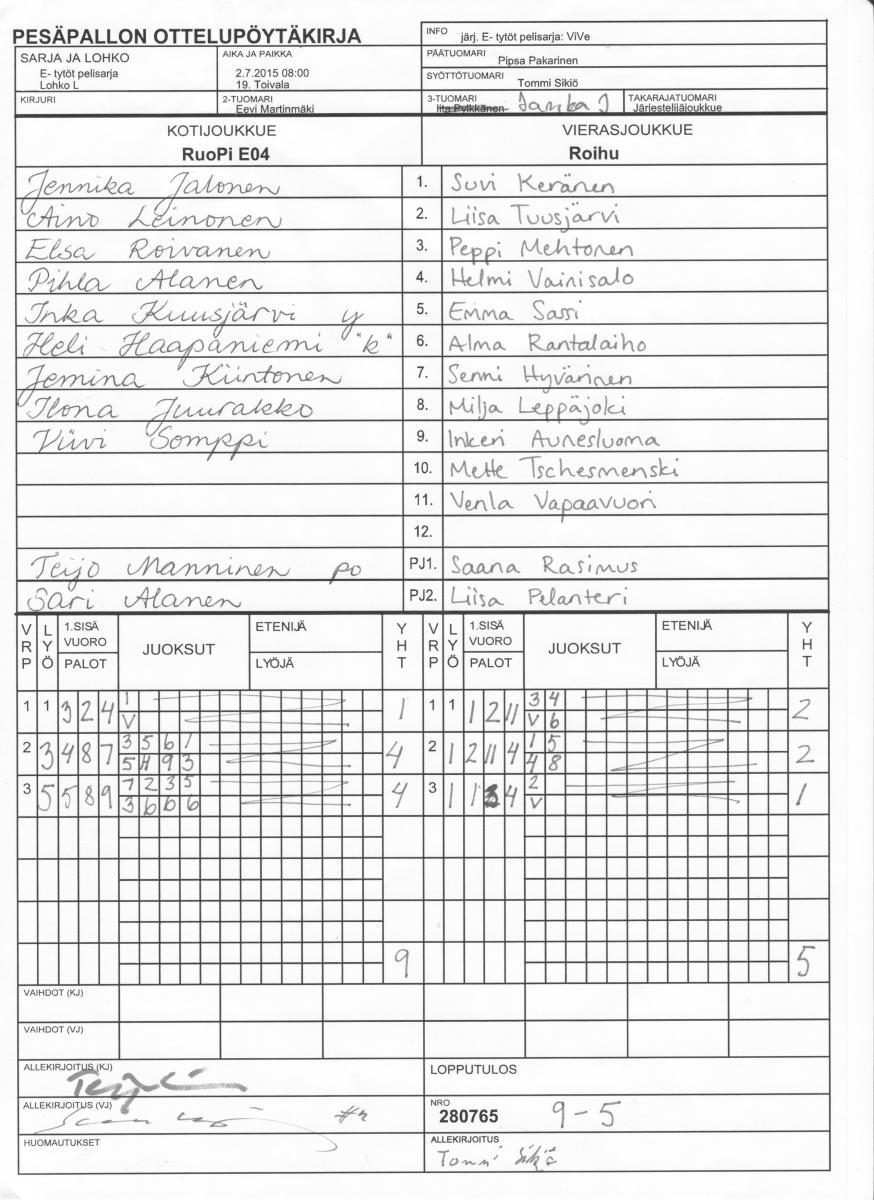 PESÄPALLON OTTELUPÖYTÄKIRJA
INFO järj. E- tytöt pelisarja: ViVe
SARJA JA LOHKO
E- tytöt pelisarja
Lohko L
AIKA JA PAIKKA
2.7.2015 08:00
19. Toivala
PÄÄTUOMARI Pipsa Pakarinen
SYÖTTÖTUOMARI Tommi Sikiö
KIRJURI
2-TUOMARI
Eevi Martinmäki
3-TUOMARI
Iita Pylkkänen
TAKARAJATUOMARI
Järjestelijäjoukkue
KOTIJOUKKUE
RuoPi E04
VIERASJOUKKUE
Roihu
Jennika Jalonen 1. Suvi Keränen
Aino Leinonen 2. Liisa Tuusjärvi
Elsa Roivanen 3. Peppi Mehtonen
Pihla Alanen 4. Helmi Vainisalo
Inka Kuusjärvi y 5. Emma Sassi
Heli Haapaniemi "k" 6. Alma Rantalaiho
Jemina Kiintonen 7. Senni Hyvärinen
Ilona Juurakko 8. Milja Leppäjoki
Viivi Somppi 9. Inkeri Aunesluoma
10. Mette Tschesmenski
11. Venla Vapaavuori
12.
Teijo Manninen po PJ1. Saana Rasimus
Sari Alanen PJ2. Liisa Pelanteri
VRP LYÖ 1.SISÄ VUORO PALOT JUOKSUT ETENIJÄ LYÖJÄ YHT VRP LYÖ 1.SISÄ VUORO PALOT JUOKSUT ETENIJÄ LYÖJÄ YHT
1 1 3 2 4 1 1 1 1 1 2 11 3 4 2
V V 6
2 3 4 8 7 3 5 6 1 4 2 1 2 11 4 1 5 2
5 4 9 3 4 8
3 5 5 8 9 7 2 3 5 4 3 1 1 3 4 2 1
3 6 6 6 V
9 5
VAIHDOT (KJ)
VAIHDOT (VJ)
ALLEKIRJOITUS (KJ)
LOPPUTULOS
ALLEKIRJOITUS (VJ)
NRO
280765 9-5
HUOMAUTUKSET
ALLEKIRJOITUS
Tommi Sikiö